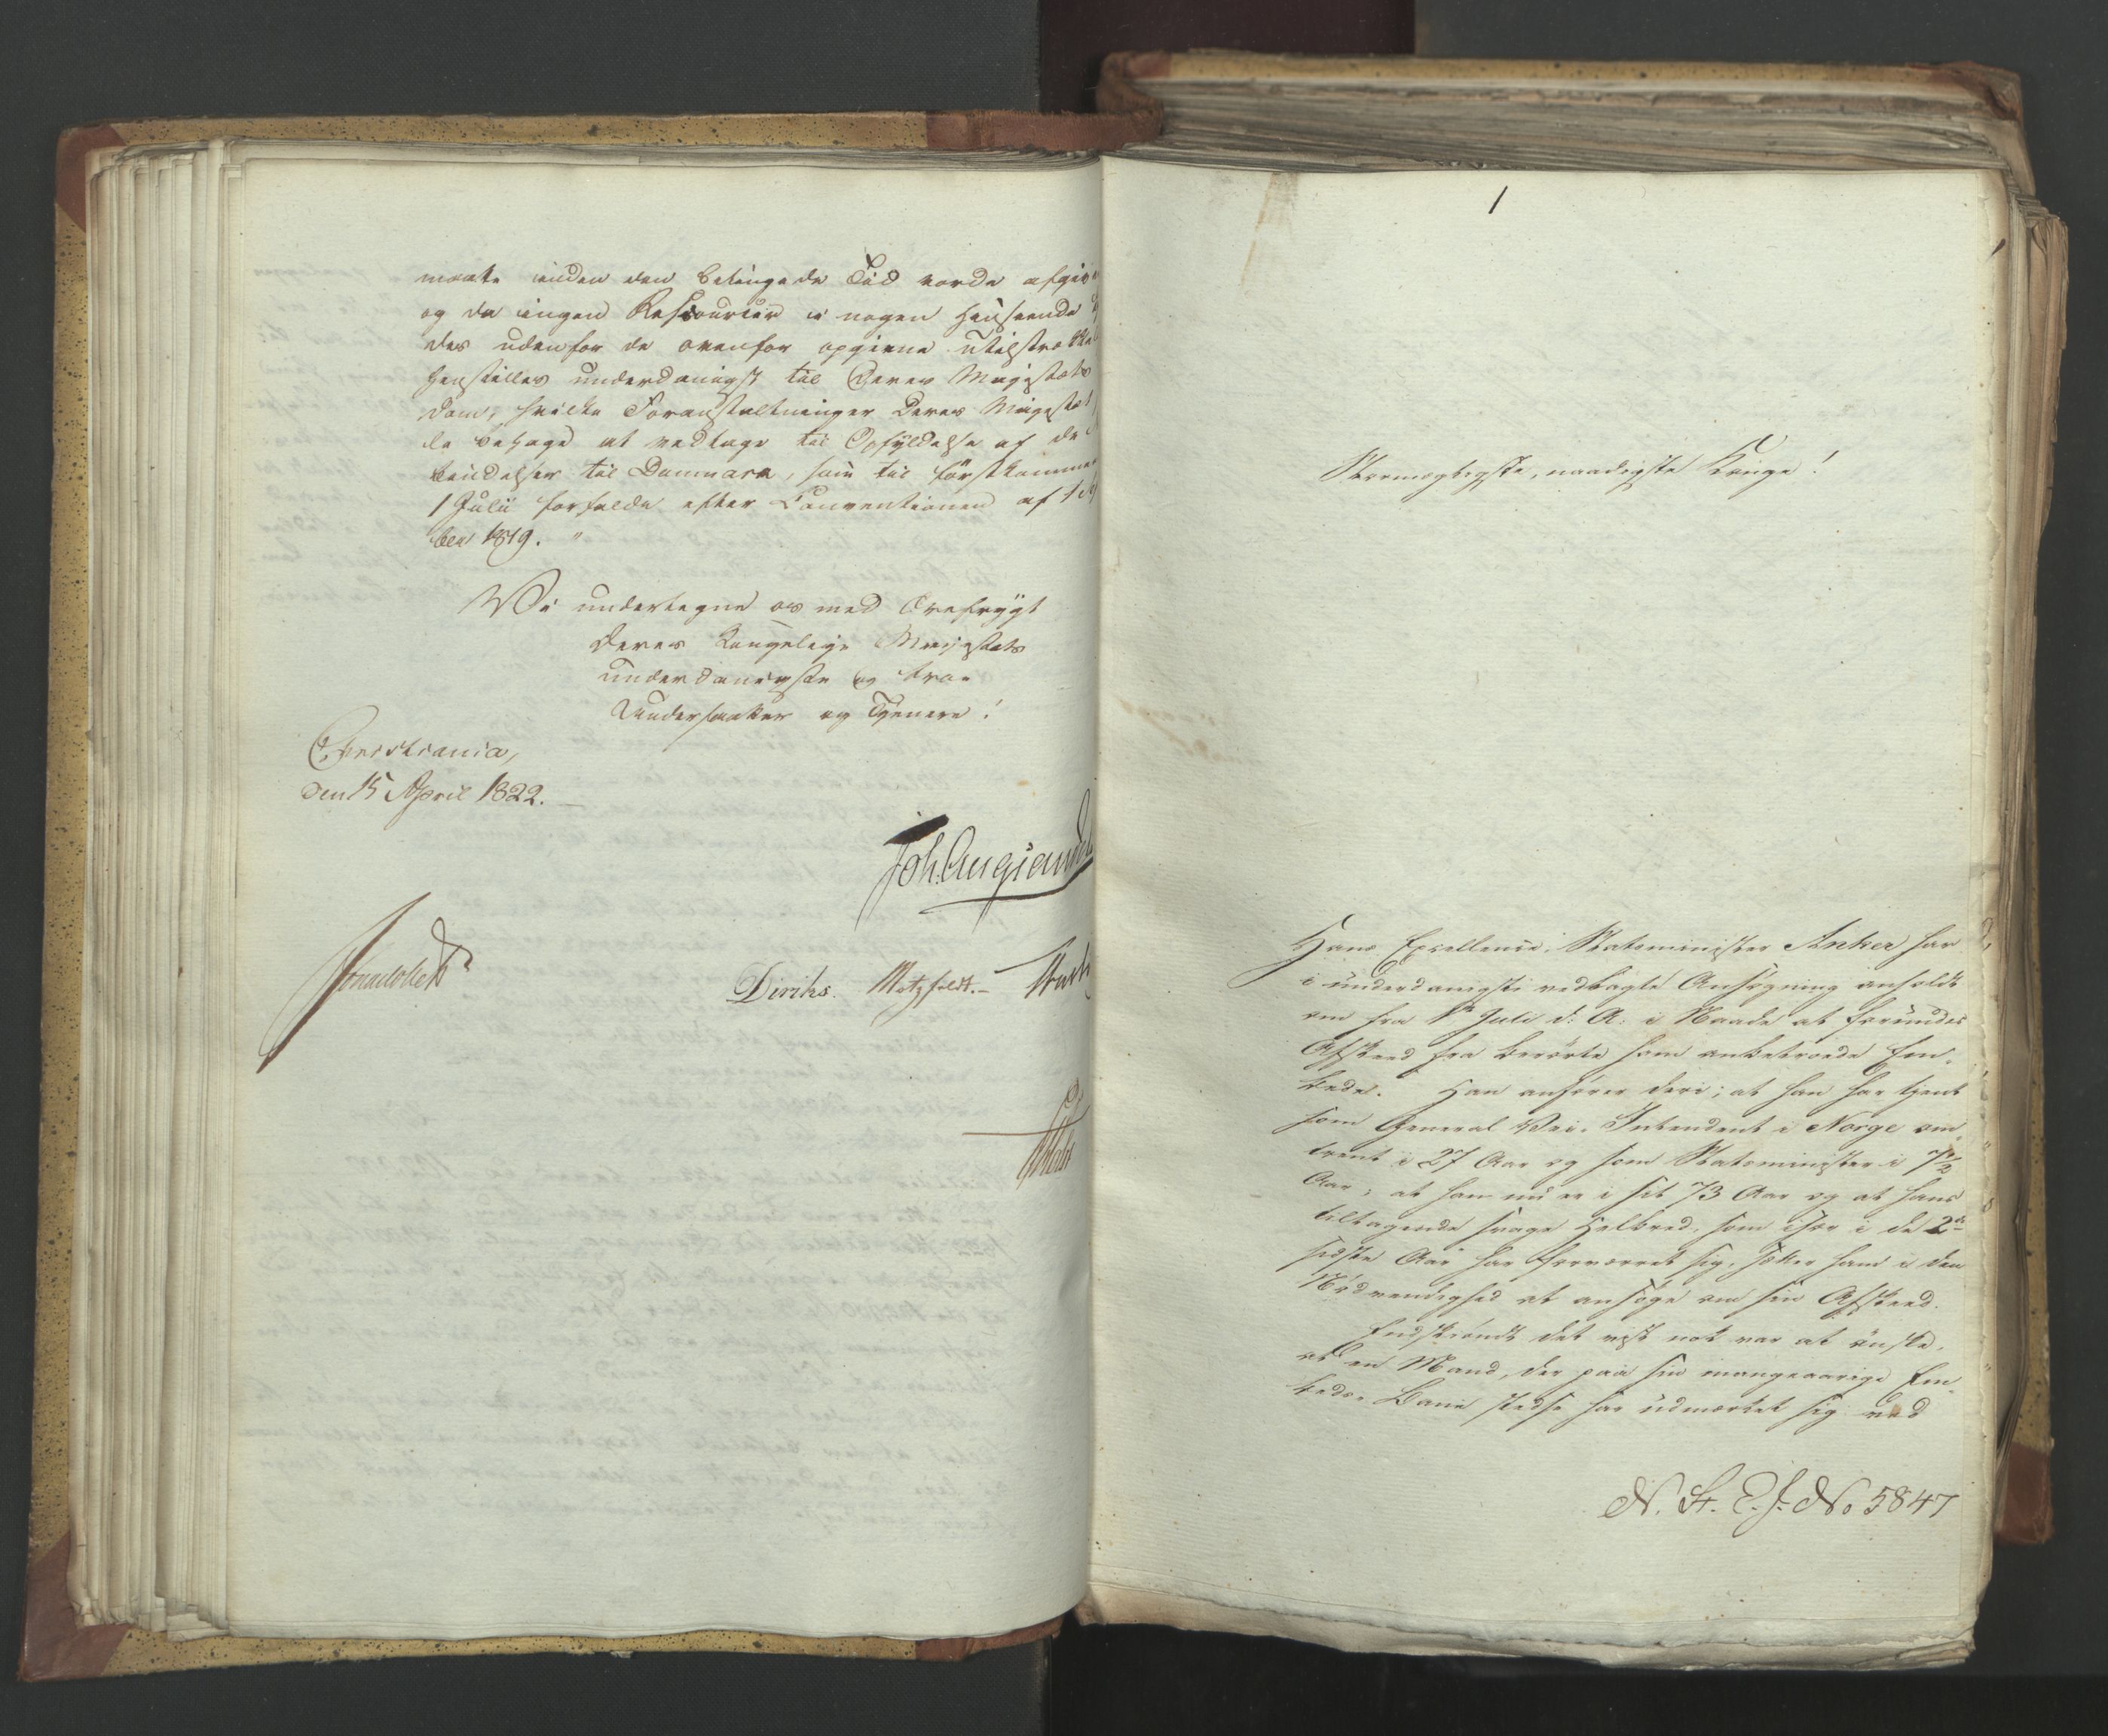 maatte inden den betingede Tid vorde afgiv
og da ingen Ressourcer i nogen Henseende
des udenfor de ovenfor opgivne utilstrække
henstilles underdanigst til Deres Majestæts
Dom, hvilke Foranstaltninger Deres Majestæt
de behage at vedtage til Opfyldelse af de
bindelser til Danmark, som til førstkommen
1 Julii forfalde efter Conventionen af 1
ber 1819. "
Vi undertegne os med Ærefrygt
Deres Kongelige Majestæts
underdanigste og troe
Undersaatter og Tjenere!
Christiania,
den 15 April 1822.
Joh. Aug: Sand
Diriks. Motzfeldt.
1
Stormægtigste, naadigste Konge!
Hans Excellence, Statsminister Anker har
i underdanigst vedlagte Ansøgning anholdt
om fra 1ste Juli d: A: i Naade at forundes
Afskeed fra berørte ham anbetroede Em-
bede. Han anfører deri, at han har tjent
som General Vei-Intendent i Norge om-
trent i 27 Aar og som Statsminister i 7½
Aar, at han nu er i sit 73 Aar og at hans
tiltagende svage Helbred, som især i de 2de
sidste Aar har forværret sig, sætter ham i den
Nødvendighed at ansøge om sin Afskeed.
Endskiøndt det vist nok var at ønske,
at en Mand, der paa sin mangeaarige Em-
beds-Bane stedse har udmærket sig ved
N. St. E. J. No 5847